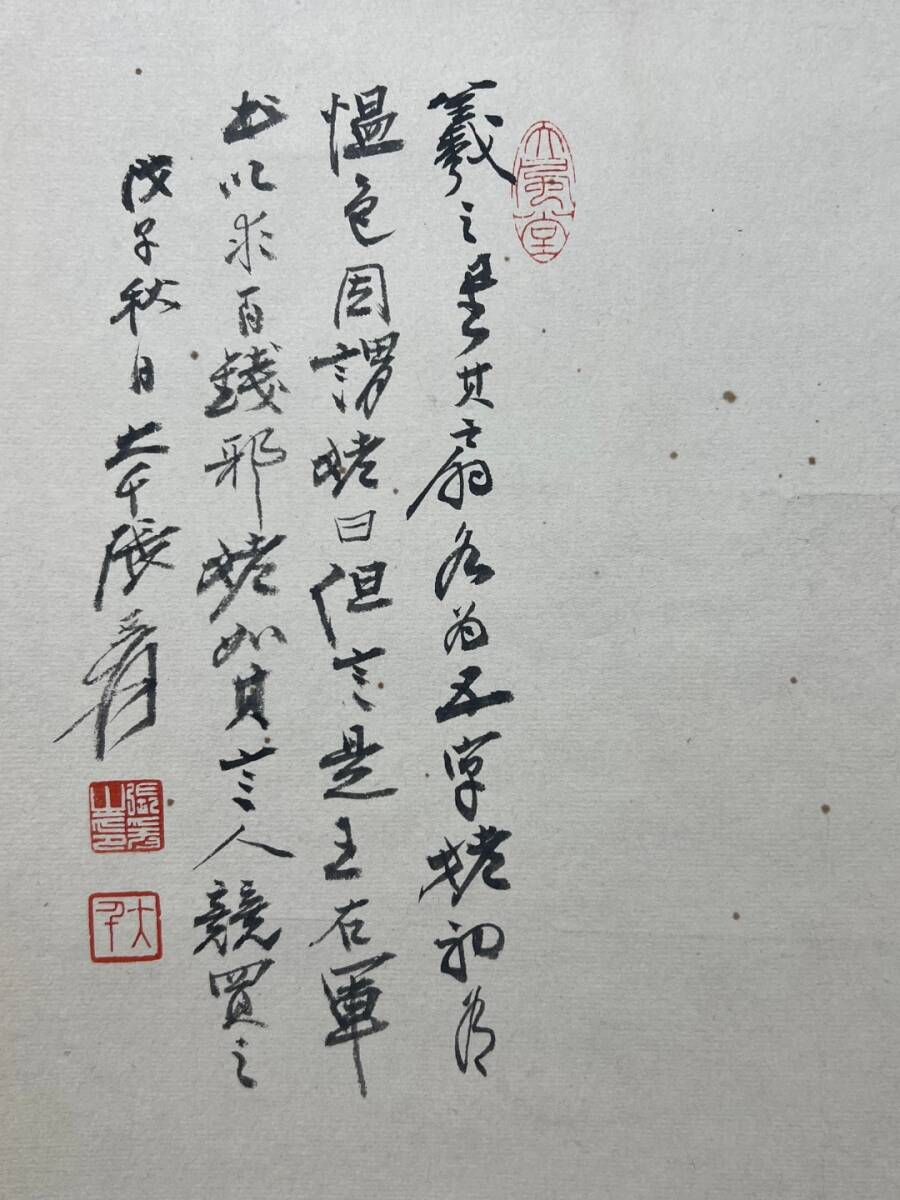 大風堂
羲之書其扇各為五字姥初有
慍色因謂姥曰但言是王右軍
書以求百錢邪姥如其言人競買之
戊子秋日大千張爰
張爰之印
大千